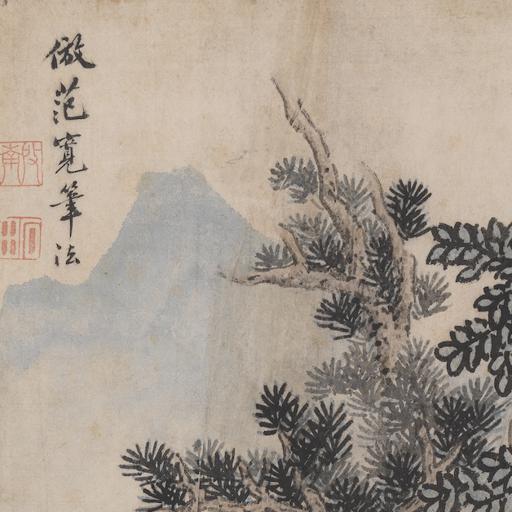 倣范寬筆法